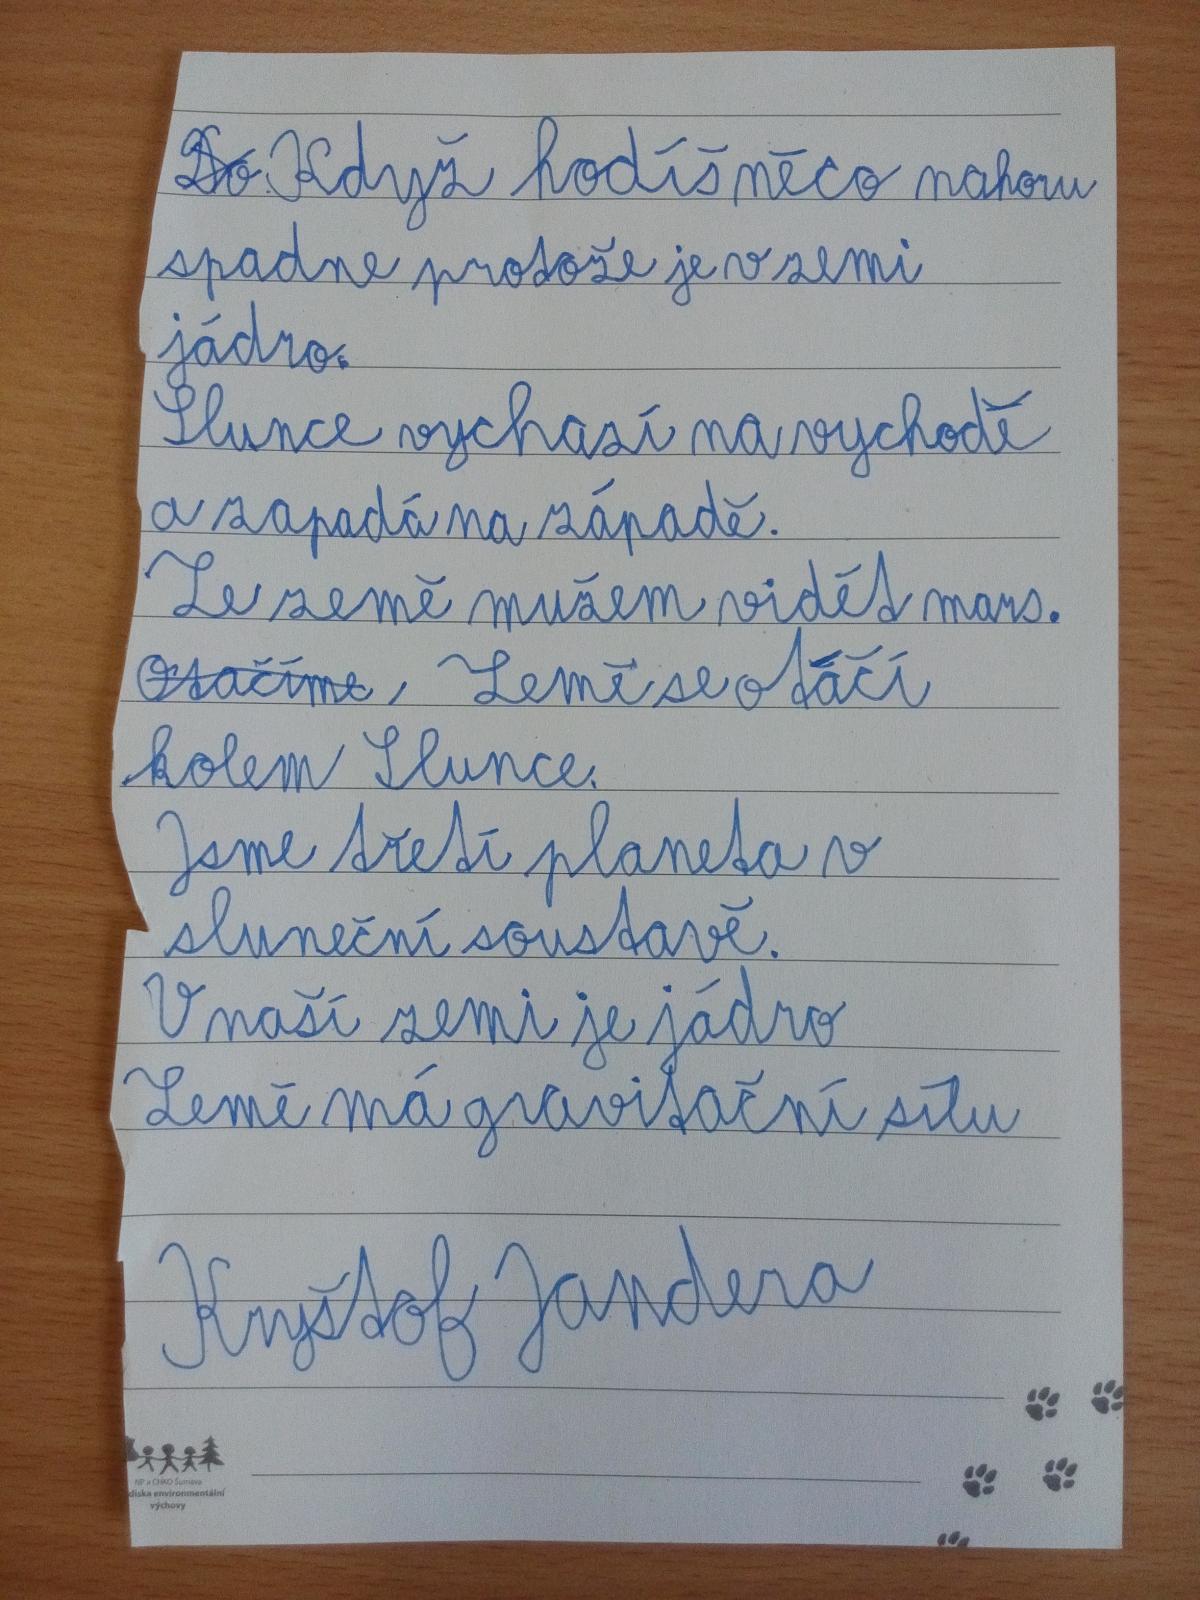 Do. Když hodíš něco nahoru
spadne protože je v zemi
jádro.
Slunce vychazí na vychodě
a zapadá na západě.
Ze země mužem vidět mars.
Otačíme, Země se otáčí
kolem Slunce.
Jsme třetí planeta v
sluneční soustavě.
V naší zemi je jádro
Země má gravitační sílu
Kryštof Jandera
NP a CHKO Šumava
diska environmentální
výchovy